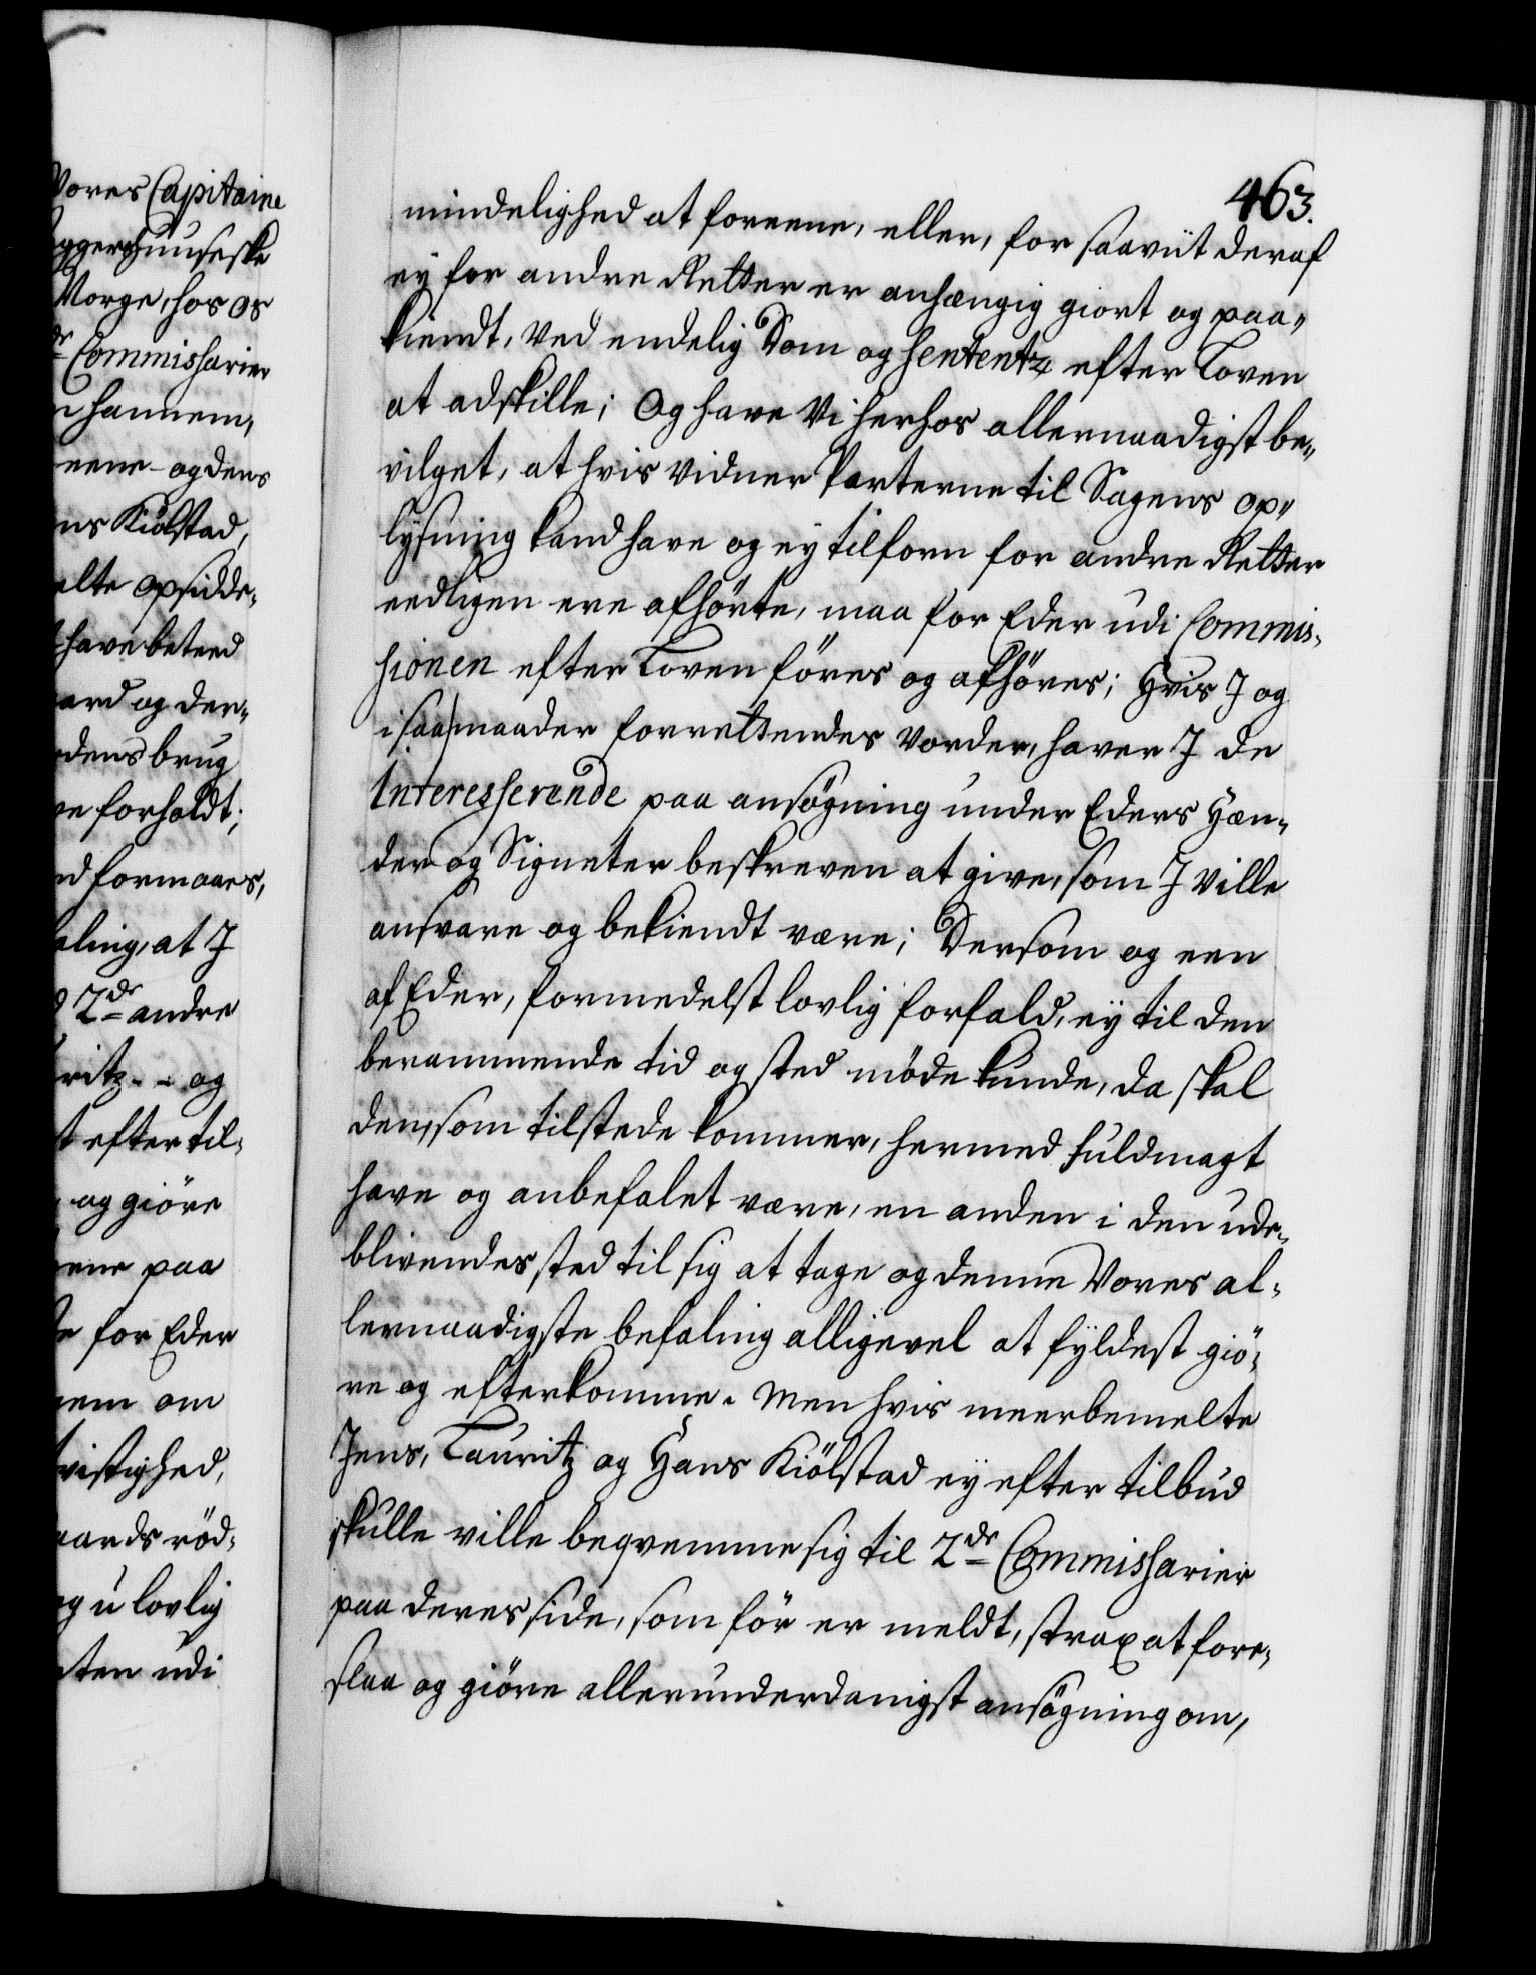 Vores Capitaine
ggershuuseske
Norge, hos os
de Commissarier
hannem,
eene- og dens
ns Kiölstad,
elte Opsidde-
have beteed
ard og der-
dens brug
e forholdt;
d formaaes,
aling, at J
2de andre
ritz-- og
t efter til-
og giöre
ene paa
e for Eder
nem om
tvistighed,
aards röd-
og u lovlig
ten udi
463.
mindelighed at foreene, eller, for saaviit deraf
eÿ for andre Retter er anhængig giort og paa-
kiendt, ved endelig Dom og Sententz efter Loven
at adskille; Og have Vi herhos allernaadigst be-
vilget, at hvis vidner Parterne til Sagens op-
lysning kand have og eÿ tilforn for andre Retter
eedligen ere afhörte, maa for Eder udi Commis-
sionen efter Loven föres og afhöres; Hvis J og
i saa maader forrettendes vorder, haver J de
Interesserende paa ansögning under Eders Hæn-
der og Signeter beskreven at give, som J ville
ansvare og bekiendt være; Dersom og een
af Eder, formedelst lovlig forfald, eÿ til den
berammende tid og sted möde kunde, da skal
den, som tilstede kommer, hermed fuldmagt
have og anbefalet være, en anden i den ude-
blivendes sted til sig at tage og denne Vores al-
lernaadigste befaling alligevel at fÿldest giö-
re og efterkomme. Men hvis meerbemelte
Jens, Lauritz og Hans Kiölstad eÿ efter tilbud
skulle ville beqvemme sig til 2de Commissarier
paa deres side, som för er meldt, strax at fore-
slaa og giöre allerunderdanigst ansögning om,